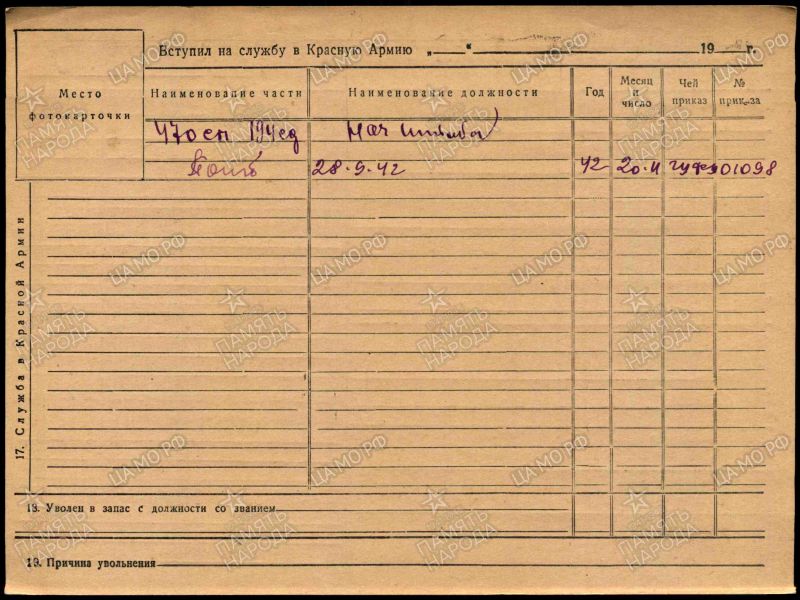 Вступил на службу в Красную Армию „ “ 19 г.
Место фотокарточки
Наименование части Наименование должности Год Месяц и число Чей приказ № приказа
470 сп 194 сд Нач штаба
Погиб 28.9.42 42 20.11 01098
17. Служба в Красной Армии
18. Уволен в запас с должности со званием
19. Причина увольнения
ПАМЯТЬ НАРОДА
ЦАМО.РФ